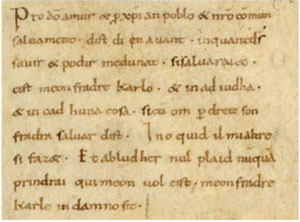 Pro do amur & p xpian poblo & nro comun
saluament . dist di en auant . inquant ds
sauir & podir me dunat . si saluarai eo .
cist meon fradre karlo . & in ad iudha .
& in cad huna cosa . si cu om p dreit son
fradra saluar dift . Ino quid il mialtre
si fazet . Et abludher nul plaid nuquã
prindrai qui meon uol cist . meon fradre
karle in damno sit .